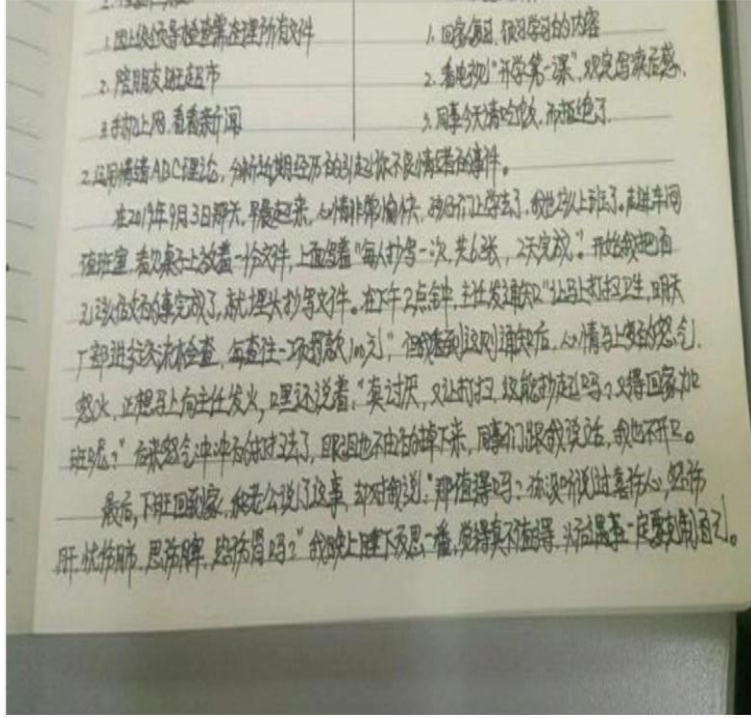 1.因上级领导检查需整理所有文件
1.回家复习、预习学习的内容
2.陪朋友逛超市
2.看电视"开学第一课",观完写读后感.
3.手机上网,看看新闻
3.同事今天请吃饭,而拒绝了
2.运用情绪ABC理论,分析近期经历的引起你不良情绪的事件。
在2019年9月3日那天,早晨起来,心情非常愉快,孩子们上学去了,我也该上班了.走进车间
值班室,看见桌子上放着一份文件,上面写着"每人抄写一次,共6张,2天完成。"开始我把自
己该做的事完成了,就埋头抄写文件。在下午2点钟,主任发通知"让马上打扫卫生,明天
厂部进行交叉检查,每查住一项罚款100元",但我看到这则通知后,心情马上变的怒气.
怒火,正想马上向主任发火,嘴还说着,"真讨厌,又让打扫,这能抄起吗?又得回家加
班呢?"后来怒气冲冲的打扫去了,眼泪也不由的掉下来,同事们跟我说话,我也不开口。
最后,下班回到家,和老公说了这事,却对我说:"那值得吗?你没听说过喜伤心,怒伤
肝,忧伤肺,思伤脾,恐伤肾吗?"我晚上睡下反思一番,觉得真不值得,以后遇事一定要克制自己。